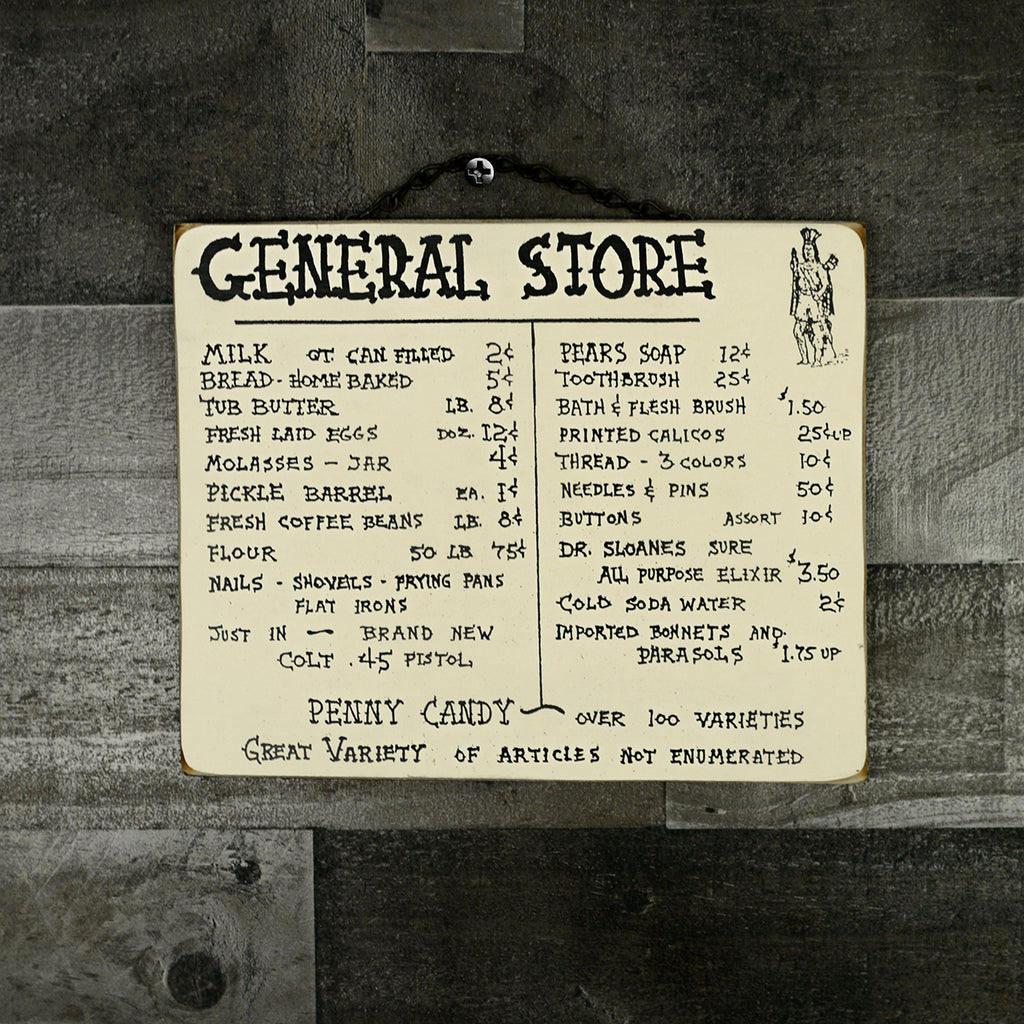 GENERAL STORE
MILK QT. CAN FILLED 2¢
BREAD - HOME BAKED 5¢
TUB BUTTER LB. 8¢
FRESH LAID EGGS DOZ. 12¢
MOLASSES - JAR 4¢
PICKLE BARREL EA. 1¢
FRESH COFFEE BEANS LB. 8¢
FLOUR 50 LB 75¢
NAILS - SHOVELS - FRYING PANS
FLAT IRONS
JUST IN — BRAND NEW
COLT .45 PISTOL
PEARS SOAP 12¢
TOOTHBRUSH 25¢
BATH & FLESH BRUSH $1.50
PRINTED CALICOS 25¢ UP
THREAD - 3 COLORS 10¢
NEEDLES & PINS 50¢
BUTTONS ASSORT 10¢
DR. SLOANES SURE
ALL PURPOSE ELIXIR $3.50
COLD SODA WATER 2¢
IMPORTED BONNETS AND
PARASOLS $1.75 UP
PENNY CANDY — OVER 100 VARIETIES
GREAT VARIETY OF ARTICLES NOT ENUMERATED